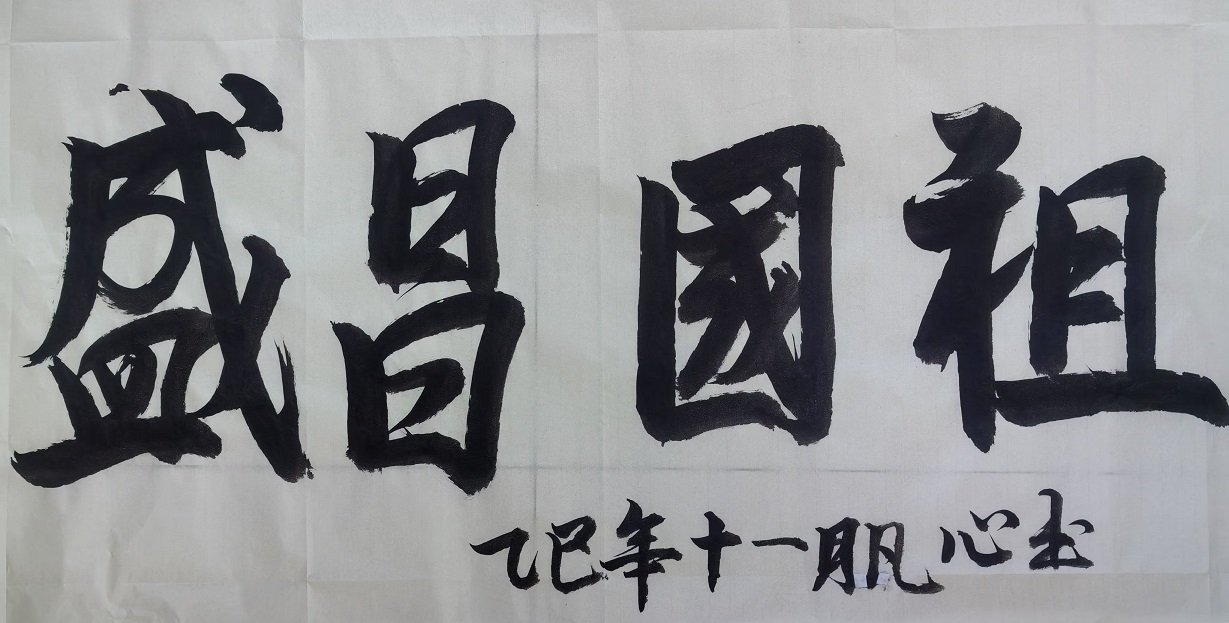 祖國昌盛
乙巳年十一月凡心书